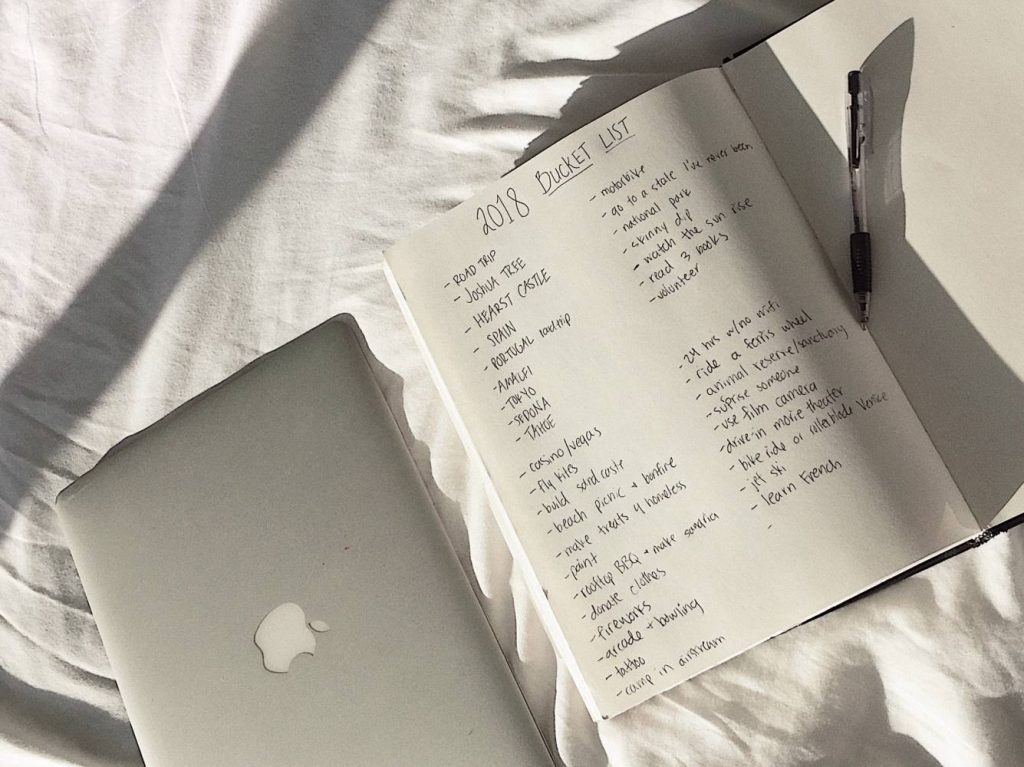 2018 BUCKET LIST
- ROAD TRIP
- JOSHUA TREE
- HEARST CASTLE
- SPAIN
- PORTUGAL roadtrip
- AMALFI
- TOKYO
- SEDONA
- TAHOE
- casino/vegas
- fly kites
- build sand caste
- beach picnic + bonfire
- make treats 4 homeless
- paint
- rooftop BBQ + make sangria
- donate clothes
- fireworks
- arcade + bowling
- tattoo
- camp in airstream
- motorbike
- go to a state I've never been
- national park
- skinny dip
- watch the sun rise
- read 3 books
- volunteer
- 24 hrs w/no wifi
- ride a ferris wheel
- animal reserve/sanctuary
- suprise someone
- use film camera
- drive-in movie theater
- bike ride or rollerblade Venice
- jet ski
- learn French
-